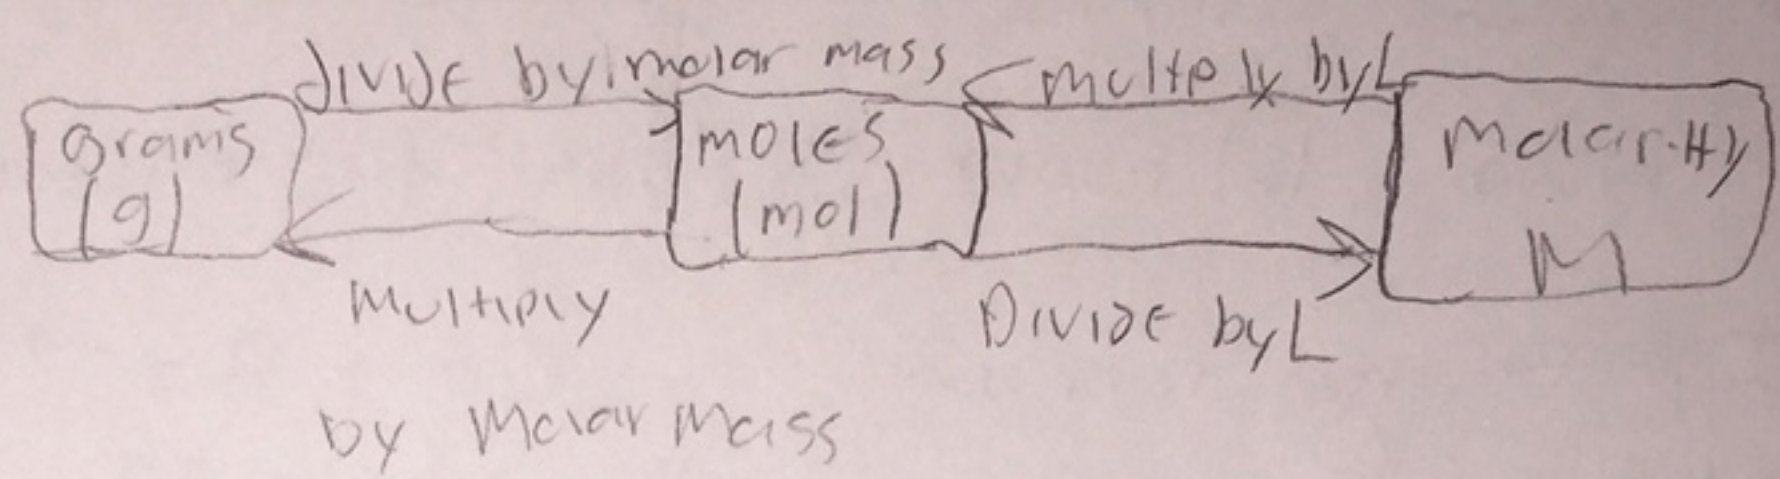 divide by molar mass
multply by L
grams
(g)
moles
(mol)
molarity
M
Multiply
by Molar Mass
Divide by L